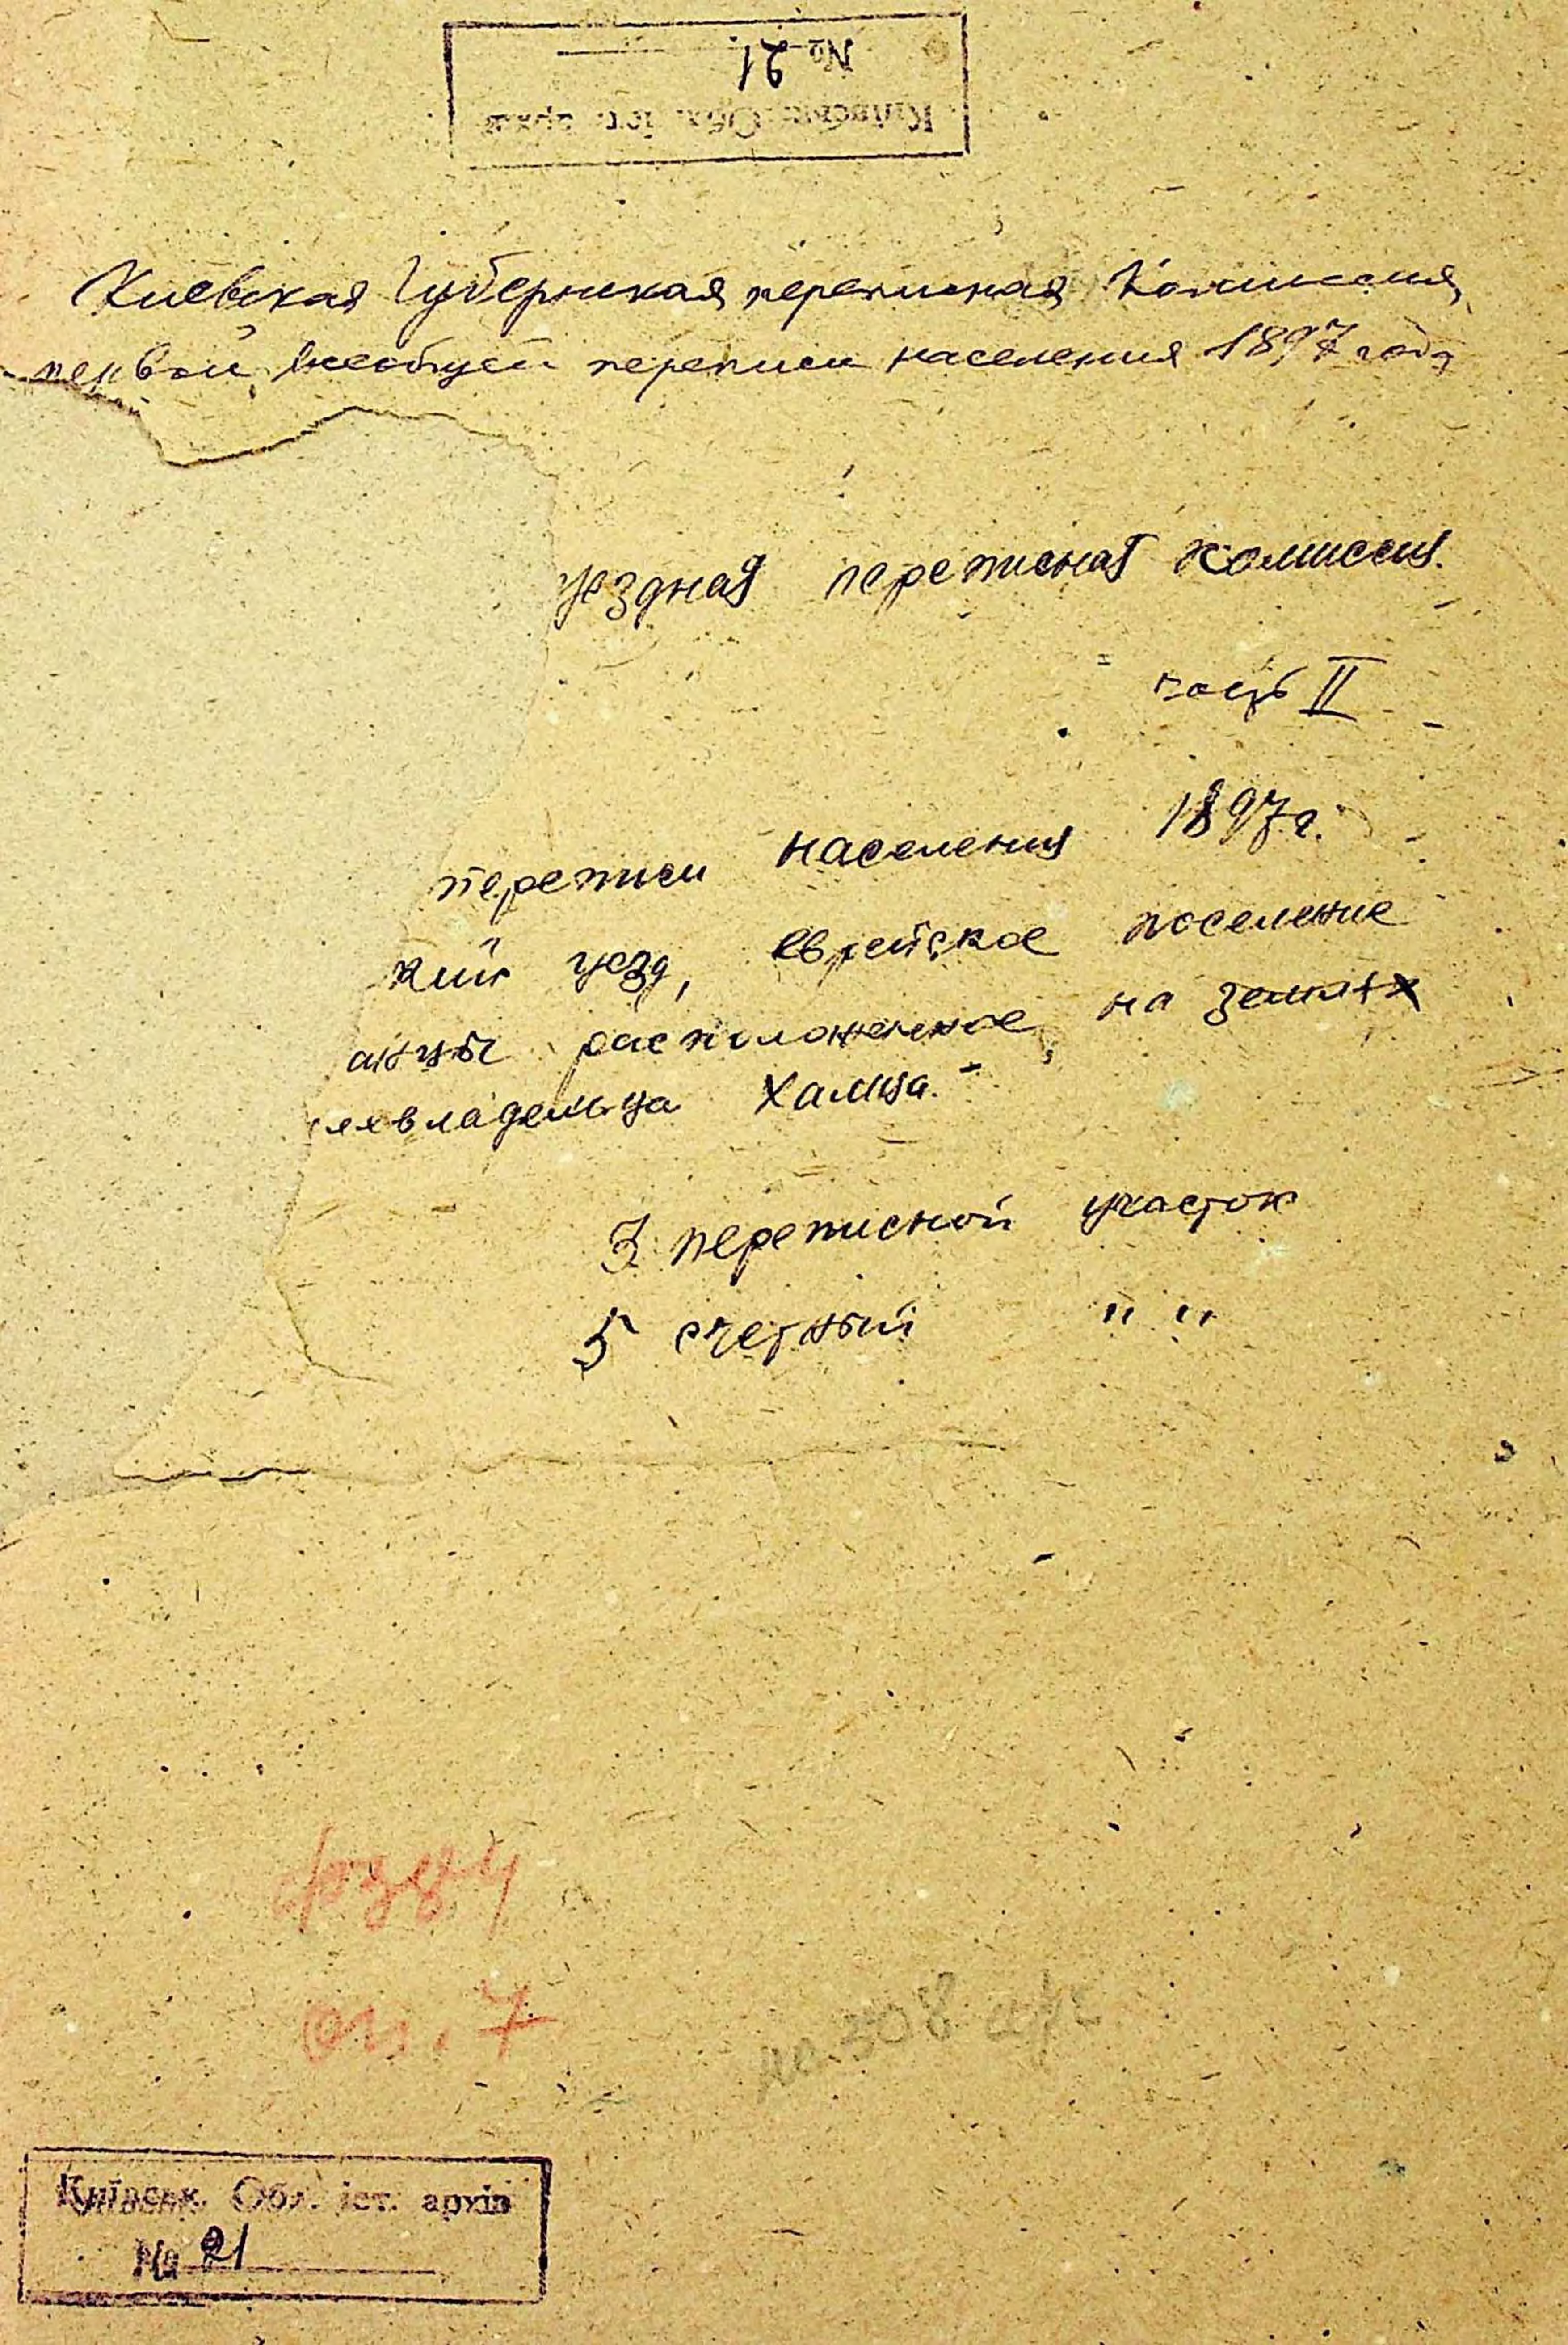 № 21
Київськ. Обл. іст. архів
Киевская Губернская переписная Комиссия
первой всеобщей переписи населения 1897 года
уездная переписная комиссия.
часть II
переписи населения 1897 г.
кий уезд, еврейское поселение
расположенное на землях
владельца
3 переписной участок
5 счетный " "
оп. 7
308
Київськ. Обл. іст. архів
№ 21